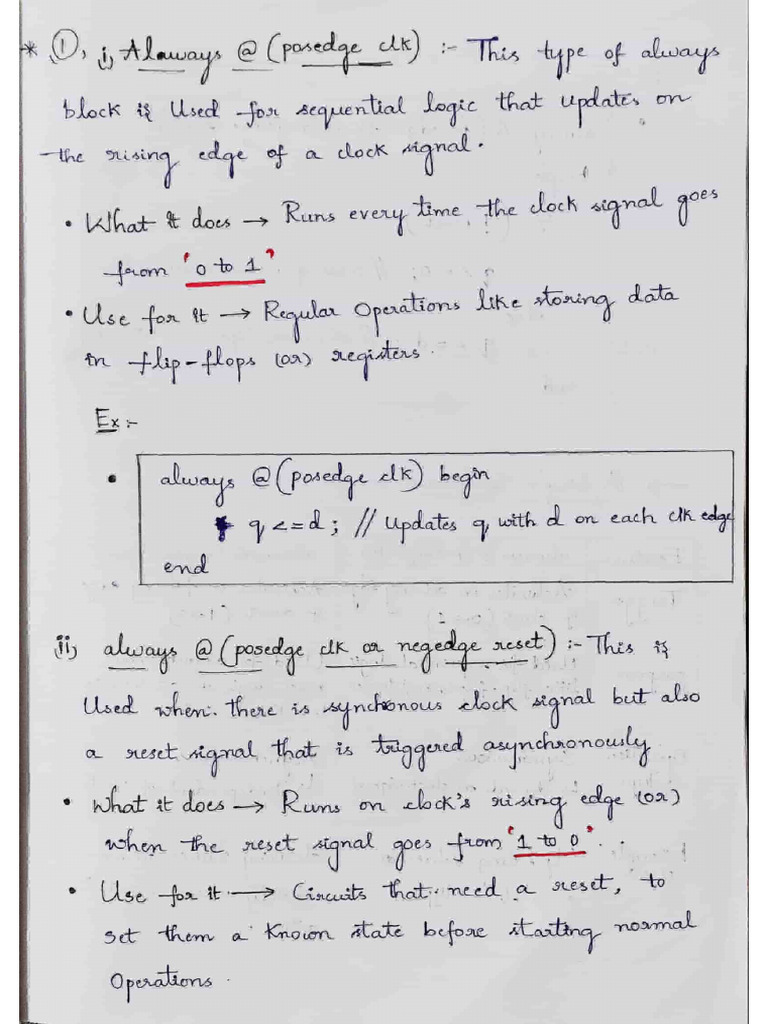 * ①, i) Alaways @ (posedge clk) :- This type of always
block is Used for sequential logic that updates on
the rising edge of a clock signal.
• What it does → Runs every time the clock signal goes
from '0 to 1'
• Use for it → Regular Operations like storing data
in flip-flops (or) registers.
Ex :-
• always @(posedge clk) begin
q <= d ; // Updates q with d on each clk edge
end
ii) always @ (posedge clk or negedge reset) :- This is
Used when there is synchonous clock signal but also
a reset signal that is triggered asynchronously
• What it does → Runs on clock's rising edge (or)
when the reset signal goes from '1 to 0'.
• Use for it → Circuits that need a reset, to
set them a Known state before starting normal
Operations.